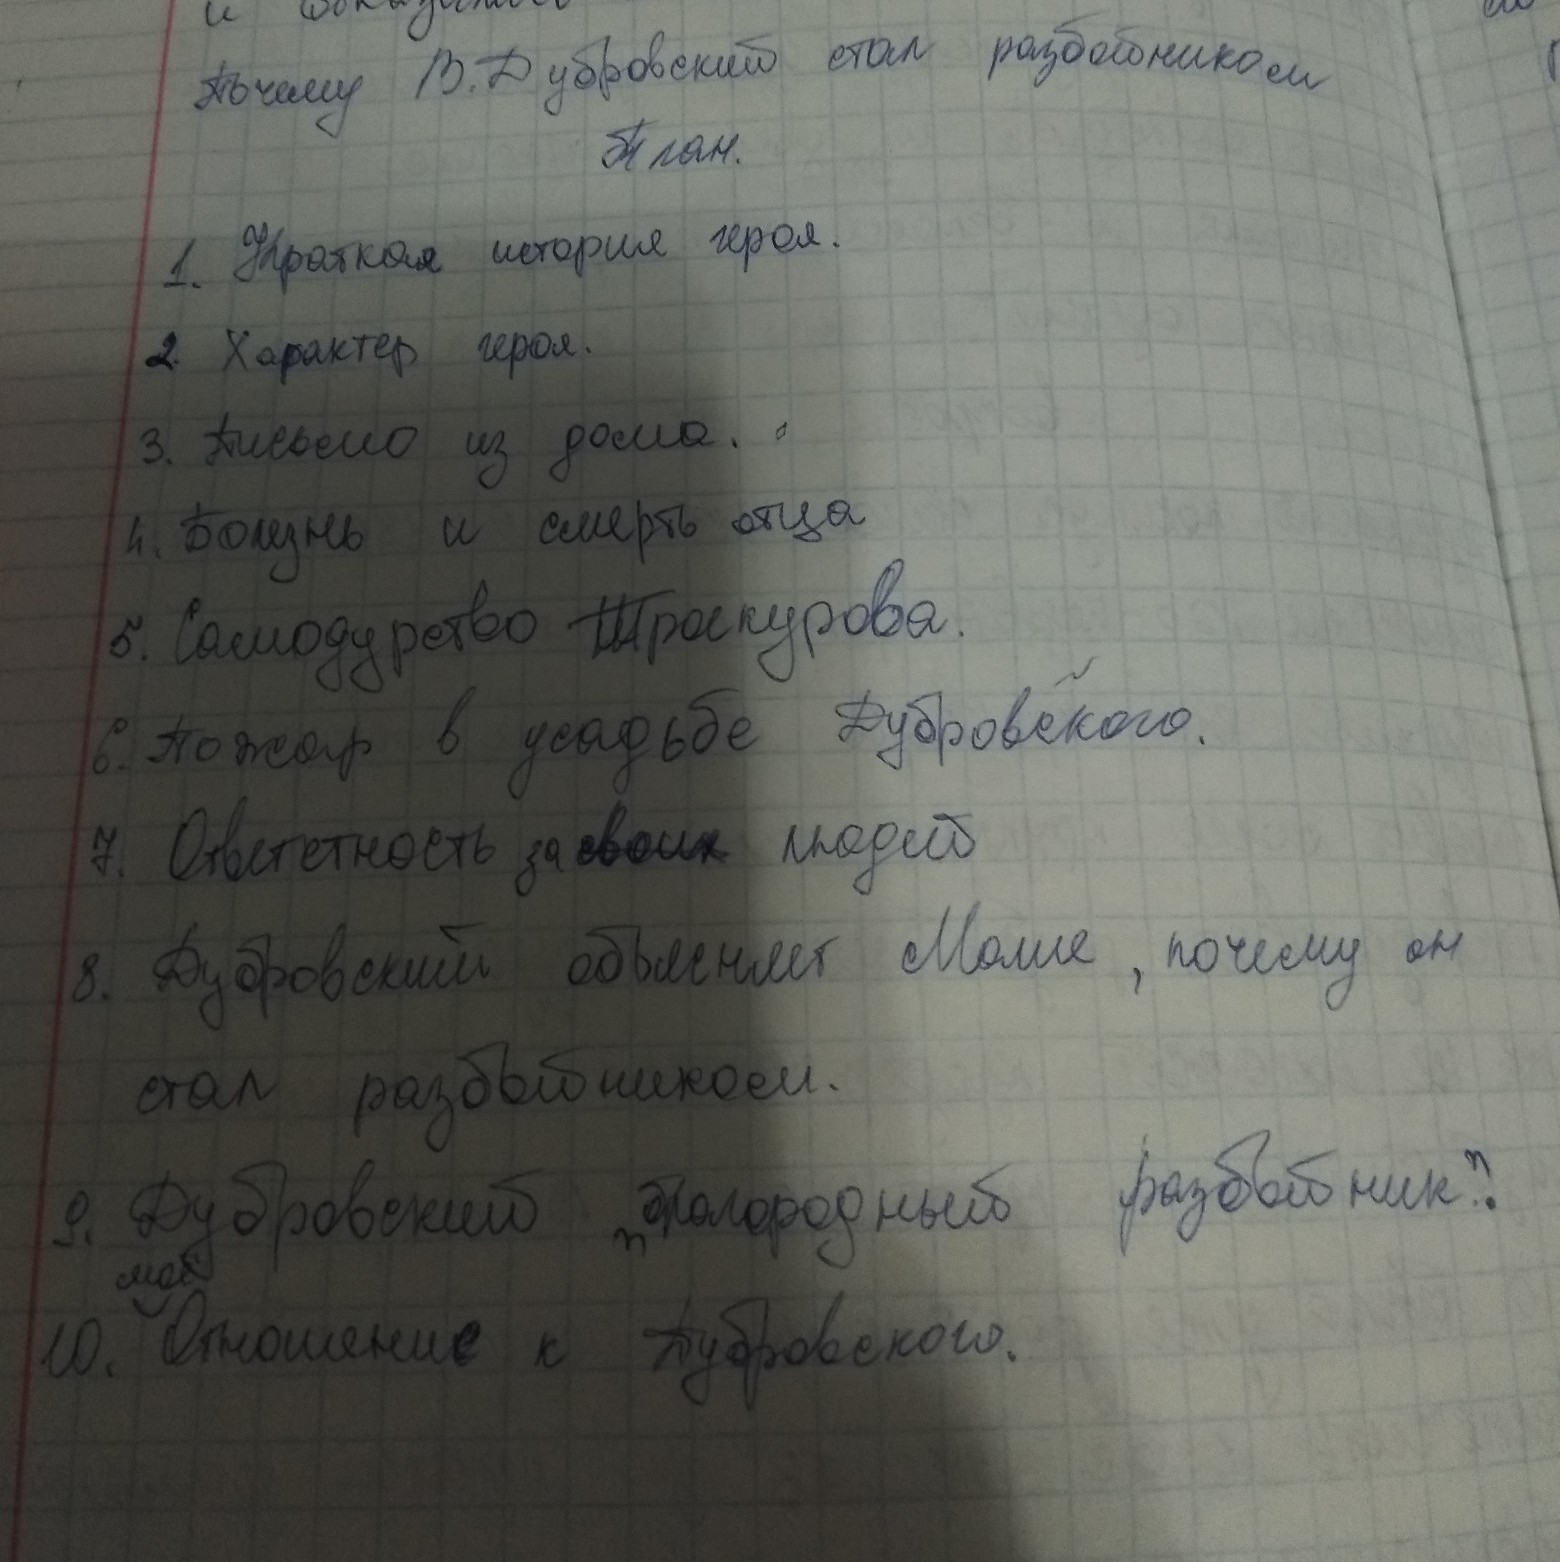 и
Почему В. Дубровский стал разбойником
План.
1. Краткая история героя.
2 Характер героя.
3. Письмо из дома.
4. Болезнь и смерть отца
5. Самодурство Троекурова.
6. Пожар в усадьбе Дубровского.
7. Ответстность за своих людей
8. Дубровский объясняет Маше, почему он
стал разбойником.
9. Дубровский „благородный разбойник".
моё
10. Отношение к Дубровского.